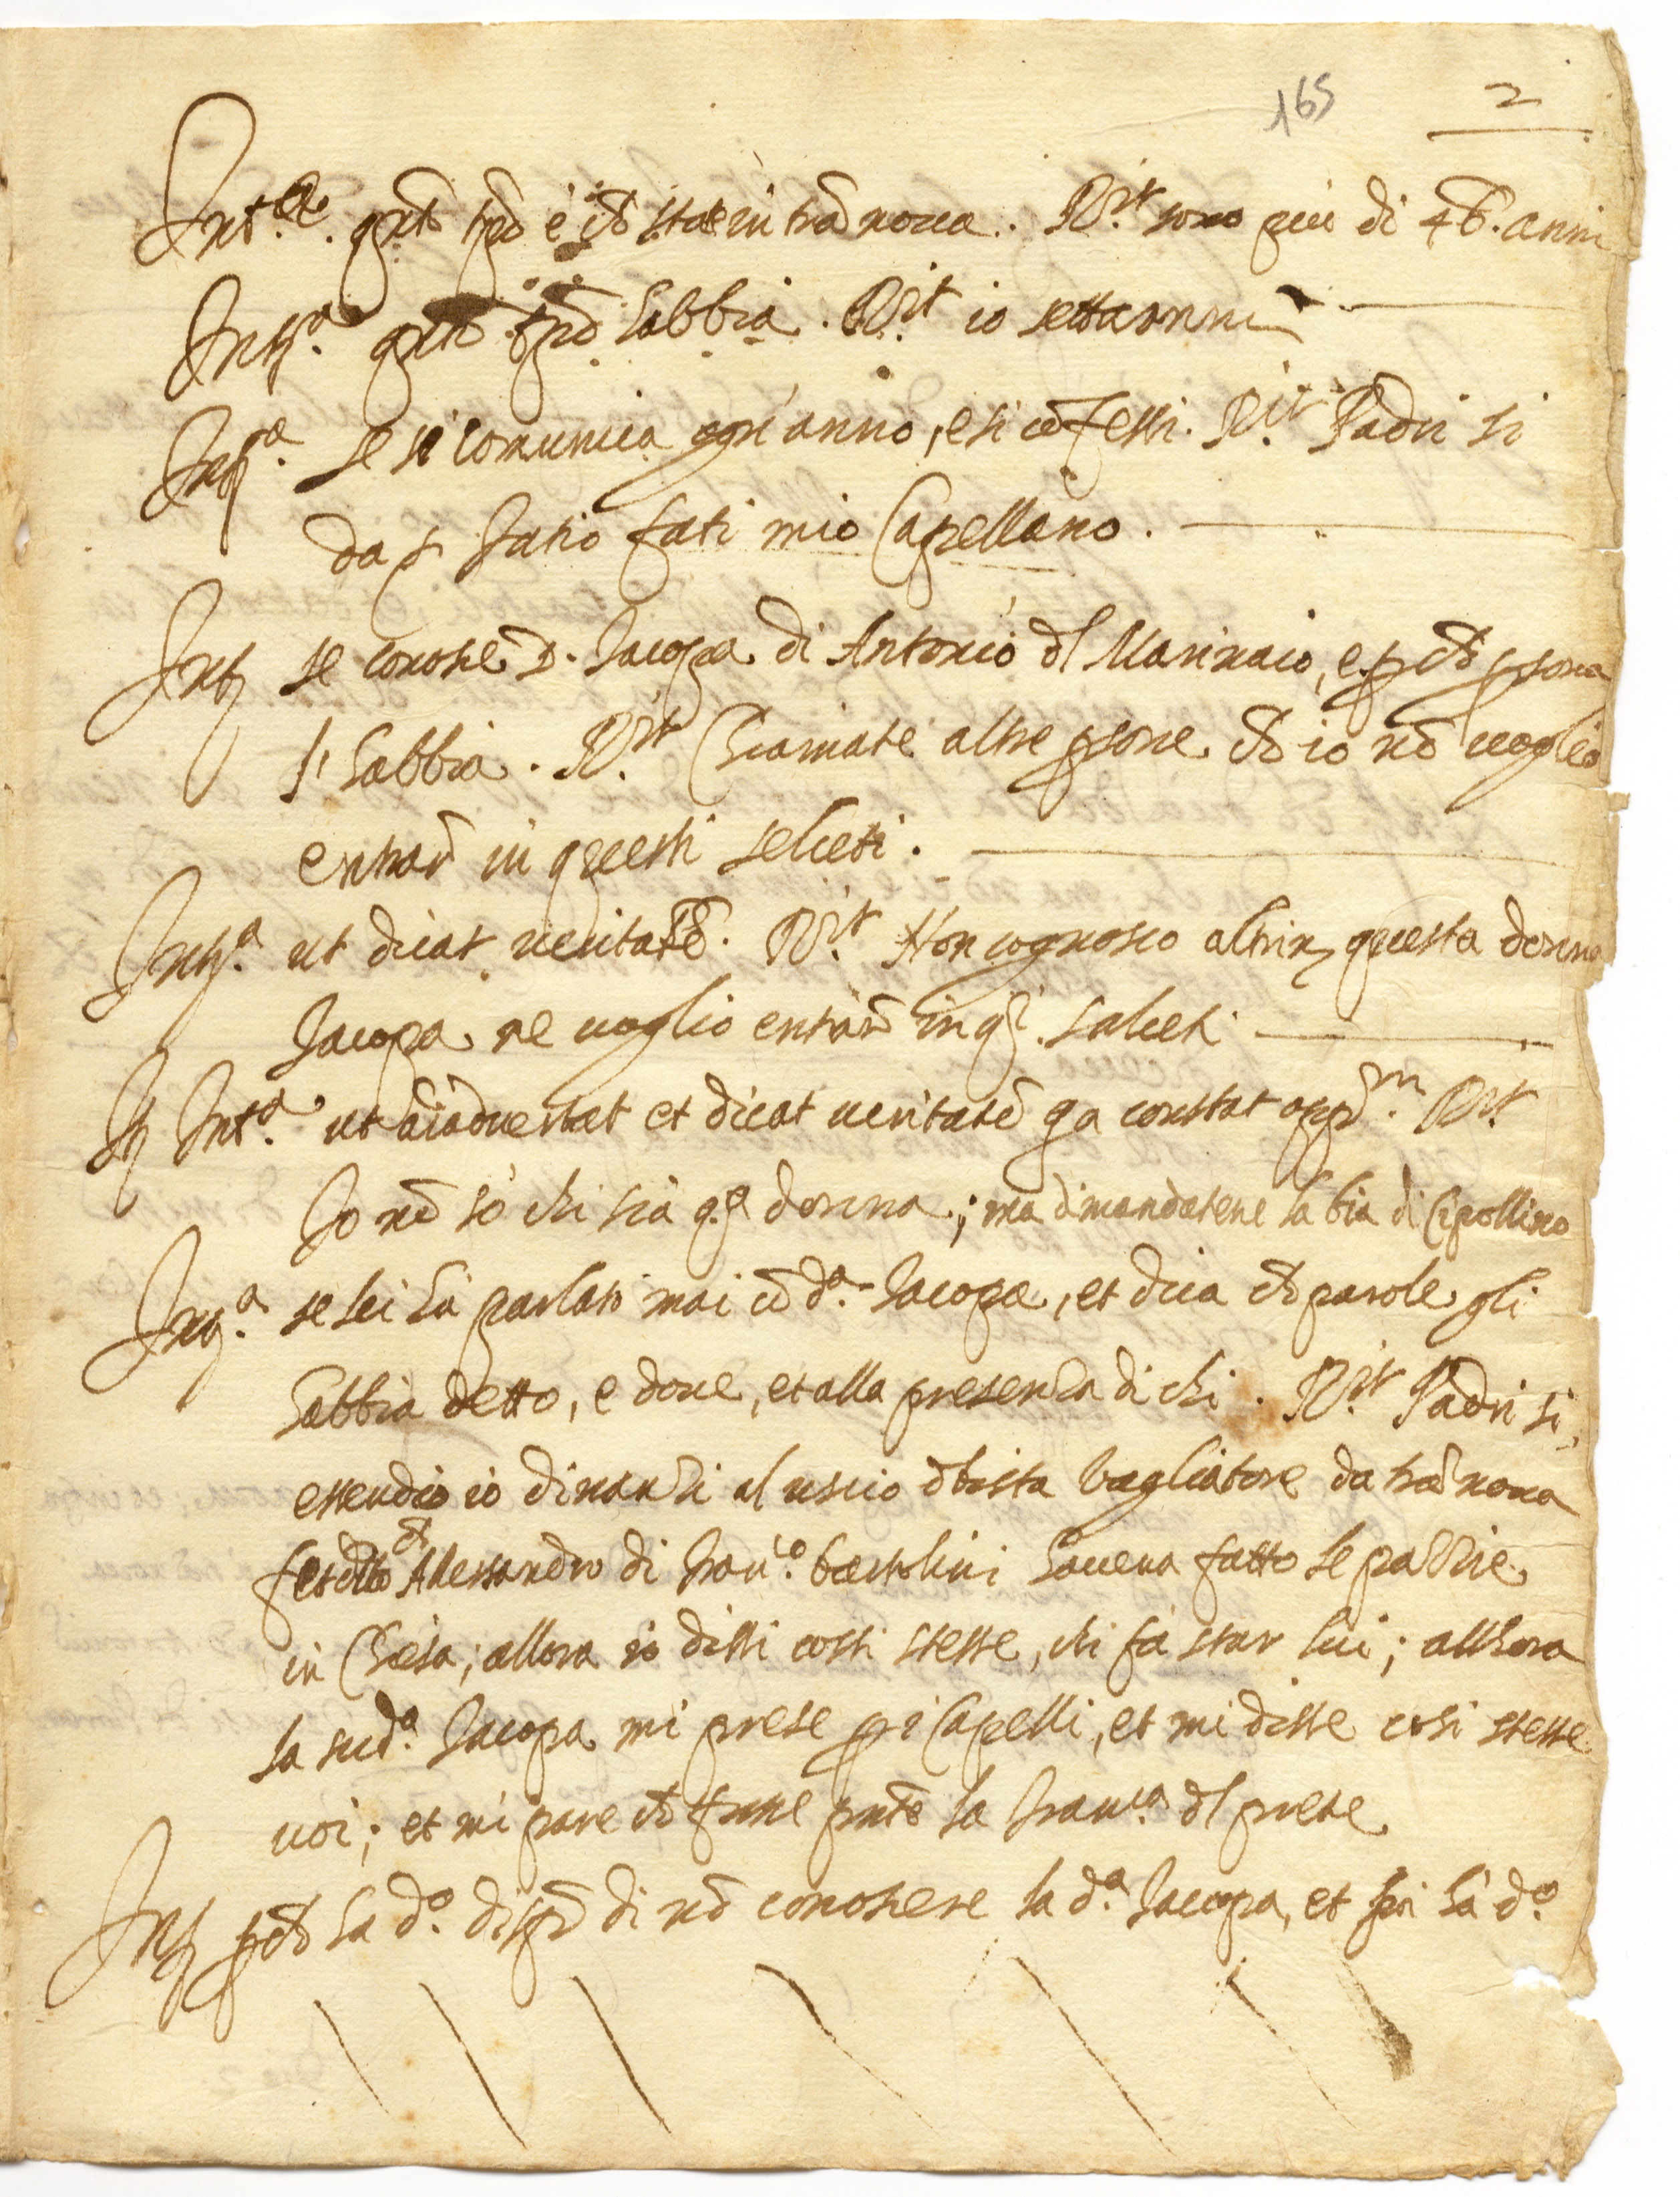 165 2
Int.ta qnto tpo è ch stae in trã nova. R.it sono piu di 46. anni
Int.a qnto tpo habbia. R.it io settanni
Int.a se si comunica ogn'anno, e si cõfessi. R.it Padri si
da p Fatio fati mio Capellano.
Int se conosce D. Jacopa di Antonio dl Marinaio, e p ch psona
l'habbia. R.it Chiamate altre psone ch io nõ voglio
entrar in questi selceti.
Int.a ut dicat veritatẽ. R.it Non cognosco altrim questa donna
Jacopa ne voglio entrar in qsi salceti
It Int.a ut aĩadvertat et dicat veritatẽ qa constat oppm. R.it
Io nõ so chi sia q.a donna; ma dimandatene la bia di Cipollino
Int.a se lei hà parlato mai cõ d.a Jacopa, et dica ch parole gli
habbia detto, e dove, et alla presenza di chi. R.it Padri si,
essendo io dinanzi al uscio d basta bagliatore da trã nova
fu detto ch Alessandro di Fran.co bartolini haveva fatto le pazzie
in Chiesa; allora io dissi cossi stesse, chi fà star lui; allhora
la sud.a Jacopa mi prese p i Capelli, et mi disse cosi stesse
voi; et mi pare ch fusse pnte la Fran.ca dl prete
Int p ch ha d.o disopr di nõ conoscere la d.a Jacopa, et poi hà d.o